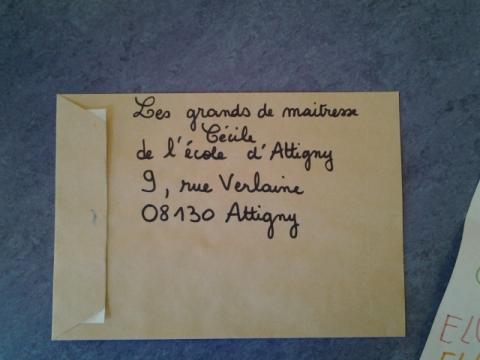 Les grands de maitresse
Cécile
de l'école d'Attigny
9, rue Verlaine
08130 Attigny